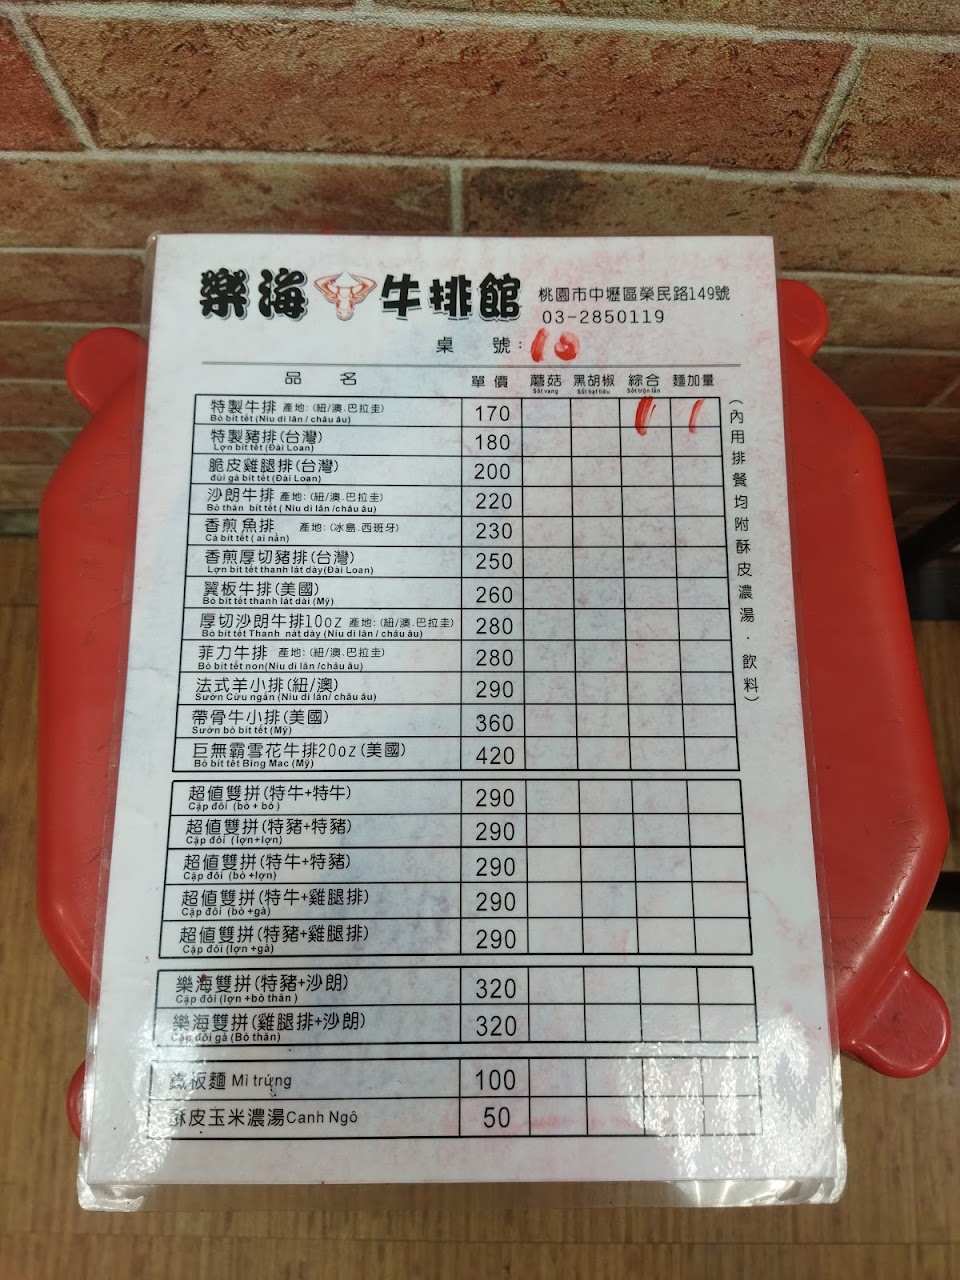 樂海 牛排館 桃園市中壢區榮民路149號
03-2850119
桌 號: 10
品 名 單價 蘑菇 黑胡椒 綜合 麵加量
Sốt vang Sốt hạt tiêu Sốt trộn lẫn
特製牛排 產地:(紐/澳.巴拉圭) 170
Bò bít tết (Niu di lân / châu âu)
特製豬排(台灣) 180
Lợn bít tết (Đài Loan)
脆皮雞腿排(台灣) 200
đùi gà bít tết (Đài Loan)
沙朗牛排 產地:(紐/澳.巴拉圭) 220
Bò thăn bít tết ( Niu di lân /châu âu)
香煎魚排 產地:(冰島.西班牙) 230
Cá bít tết ( ai nản)
香煎厚切豬排(台灣) 250
Lợn bít tết thanh lát dày(Đài Loan)
翼板牛排(美國) 260
Bò bít tết thanh lát dài (Mỹ)
厚切沙朗牛排10oz 產地:(紐/澳.巴拉圭) 280
Bò bít tết Thanh nát dày (Niu di lân / châu âu)
菲力牛排 產地:(紐/澳.巴拉圭) 280
Bò bít tết non(Niu di lân /châu âu)
法式羊小排(紐/澳) 290
Sườn Cừu ngắn (Niu di lân/ châu âu)
帶骨牛小排(美國) 360
Sườn bò bít tết (Mỹ)
巨無霸雪花牛排20oz(美國) 420
Bò bít tết Bing Mac (Mỹ)
(內用排餐均附酥皮濃湯.飲料)
超值雙拼(特牛+特牛) 290
Cặp đôi (bò + bò )
超值雙拼(特豬+特豬) 290
Cặp đôi (lợn+lợn)
超值雙拼(特牛+特豬) 290
Cặp đôi (bò +lợn)
超值雙拼(特牛+雞腿排) 290
Cặp đôi (bò +gà)
超值雙拼(特豬+雞腿排) 290
Cặp đôi (lợn +gà)
樂海雙拼(特豬+沙朗) 320
Cặp đôi (lợn +bò thăn )
樂海雙拼(雞腿排+沙朗) 320
Cặp đôi gà (Bò thăn)
鐵板麵 Mì trứng 100
酥皮玉米濃湯Canh Ngô 50